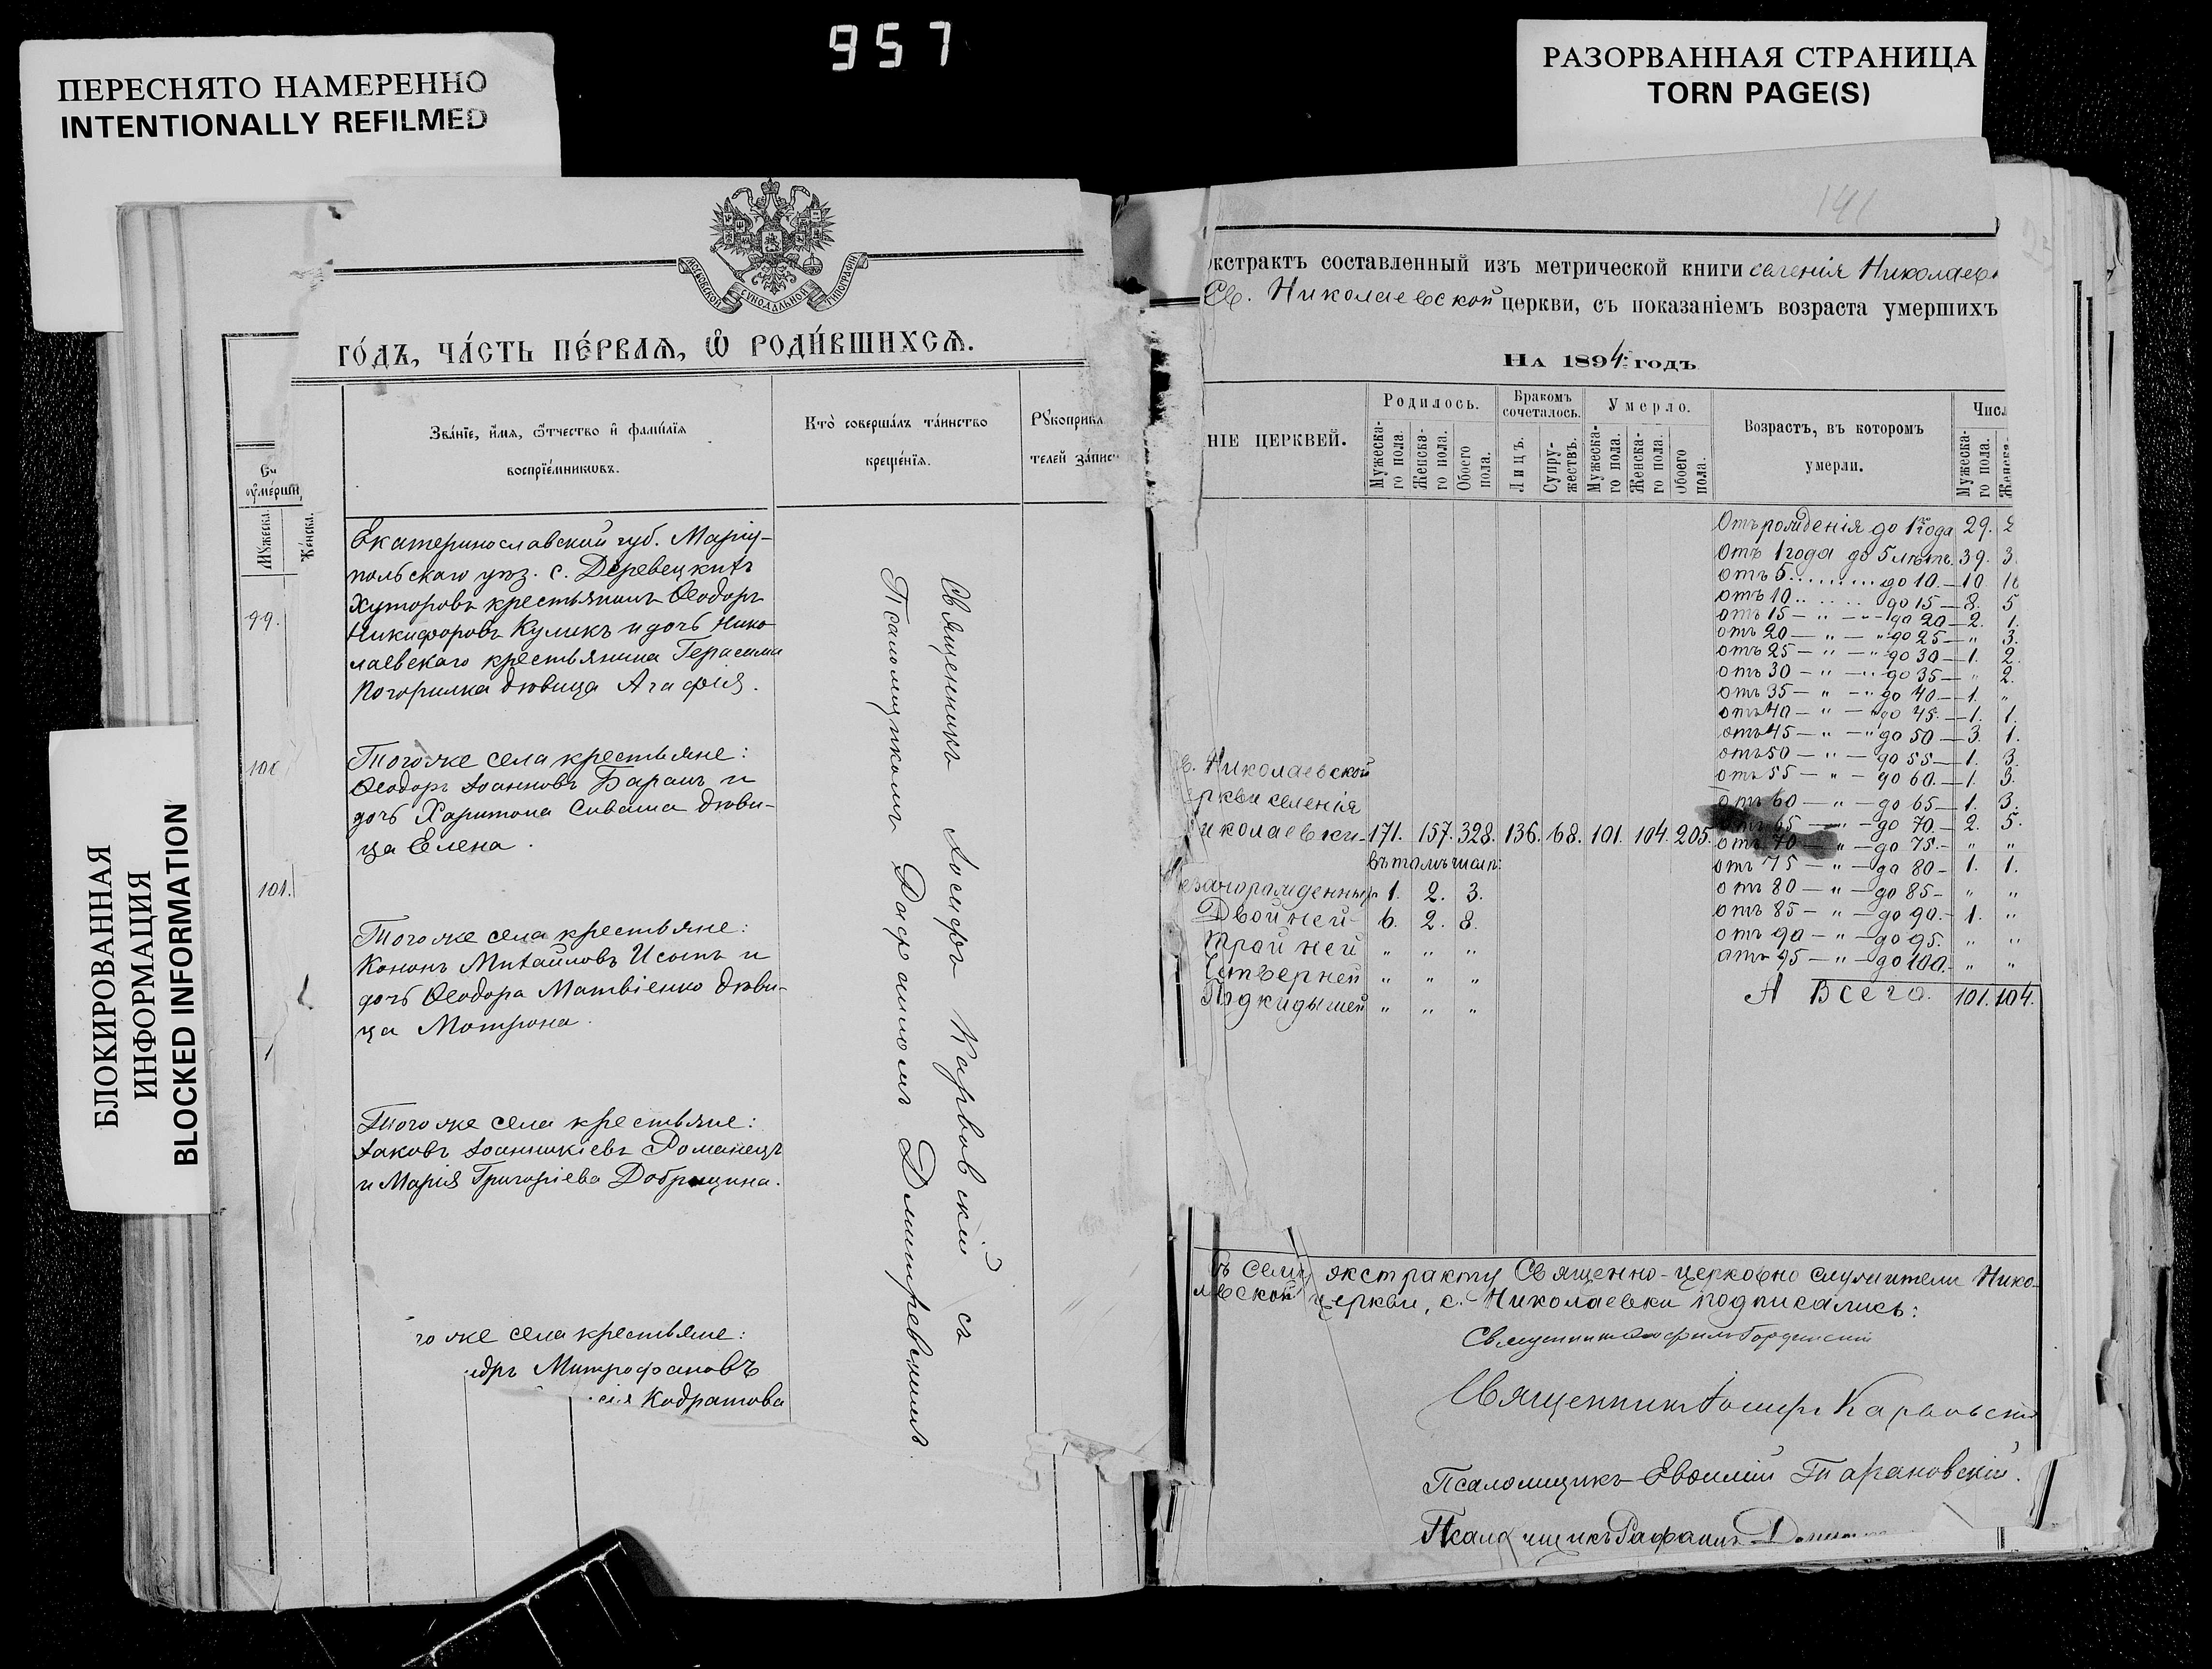 957
ПЕРЕСНЯТО НАМЕРЕННО
INTENTIONALLY REFILMED
РАЗОРВАННАЯ СТРАНИЦА
TORN PAGE(S)
БЛОКИРОВАННАЯ
ИНФОРМАЦИЯ
BLOCKED INFORMATION
МОСКОВСКОЙ СУНОДАЛЬНОЙ ТИПОГРАФІИ
ГО́ДЪ, ЧА́СТЬ ПЕ́РВАѦ, Ѡ҆ РОДИ́ВШИХСѦ.
ᲂу҆ме́рши
Мꙋжеска.
Же́нска.
Зва́нїе, и҆́мѧ, ѻ҆́тчество и҆ фами́лїѧ
воспрїе́мникѡвъ.
Кто̀ соверша́лъ та́инство
креще́нїѧ.
Рꙋкоприкл
телей за́пис
99.
Екатеринославской губ. Маріу-
польскаго уѣз. с. Деревецкихъ
Хуторовъ крестьянинъ Ѳеодоръ
Никифоровъ Куликъ и дочь Нико
лаевскаго крестьянина Герасима
Погорилка дѣвица Агафія.
Тогоже села крестьяне:
Ѳеодоръ Іоанновъ Баранъ и
дочь Харитона Сиваша дѣви-
ца Елена.
101.
Тогоже села крестьяне:
Кононъ Михайловъ Исаинъ и
дочь Ѳеодора Матвіенко дѣви-
ца Матрона.
Тогоже села крестьяне:
Іаковъ Іоанникіевъ Романецъ
и Марія Григоріева Добрицина.
го же села крестьяне:
ндръ Митрофановъ
Кодратова
Священникъ Іосифъ Карвовскій съ
Псаломщикомъ Рафаиломъ Димитревскимъ.
141
кстрактъ составленный изъ метрической книги селенія Николаев
Св. Николаевской церкви, съ показаніемъ возраста умершихъ
На 1894 годъ
НІЕ ЦЕРКВЕЙ.
Родилось.
Бракомъ сочеталось.
Умерло.
Возрастъ, въ которомъ
умерли.
Числ
Мужеска-го пола.
Женска-го пола.
Обоего пола.
Лицъ.
Супру-жествъ.
Мужеска-го пола.
Женска-го пола.
Обоего пола.
Мужеска-го пола.
Отъ рожденія до 1 года 29. 2
Отъ 1 года до 5 лѣтъ. 39. 3.
отъ 5......... до 10.— 10. 10
отъ 10........ до 15— 8. 5
отъ 15— „ — „ до 20— 2. 1.
отъ 20— „ — „ до 25— „ 3.
отъ 25— „ — „ до 30— 1. 2.
отъ 30— „ — „ до 35— „ 2.
отъ 35— „ — „ до 40— 1. „
отъ 40— „ — „ до 45.— 1. 1.
отъ 45— „ — „ до 50— 3. 1.
отъ 50— „ — до 55— 1. 3.
отъ 55— „ — до 60.— 1. 3.
отъ 60— „ — до 65— 1. 3.
отъ 65 — „ — до 70.— 2. 5.
отъ 70— „ — до 75.— „ „
отъ 75— „ — до 80— 1. 1.
отъ 80— „ — до 85— „ „
отъ 85— „ — до 90.— 1. „
отъ 90— „ — до 95. „ „
отъ 95— „ — до 100.— „ „
А Всего. 101. 104.
в. Николаевской
ркви селенія
иколаевки— 171. 157. 328. 136. 68. 101. 104. 205.
въ томъ числѣ:
езакорожденныхъ 1. 2. 3.
Двойней— 6. 2. 8.
Тройней „ „ „
Четверней „ „ „
Подкидышей „ „ „
ъ сему экстракту Священно-церковно служители Нико-
левской церкви, с. Николаевки подписались:
Священникъ
Священникъ Іосифъ Карвовскій
Псаломщикъ Евфимій Тарановскій.
Псаломщикъ Рафаилъ